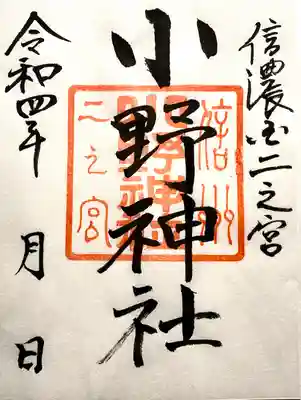 信濃国二之宮
小野神社
信州
二之宮
令和四年 月 日